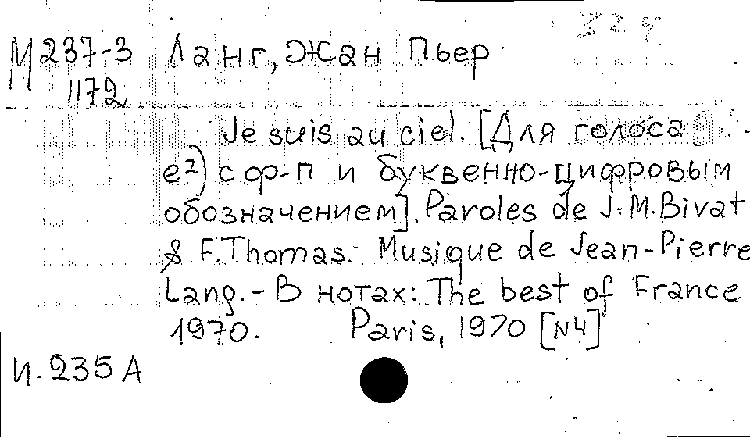 М237-3 Ланг, Жан Пьер
1172
Je suis au ciel. [Для голоса
e²) с ф-п и буквенно-цифровым
обозначением]. Paroles de J.M.Bivat
& F.Thomas. Musique de Jean-Pierre
Lang. - В нотах: The best of France
1970. Paris, 1970 [N4]
И.235А